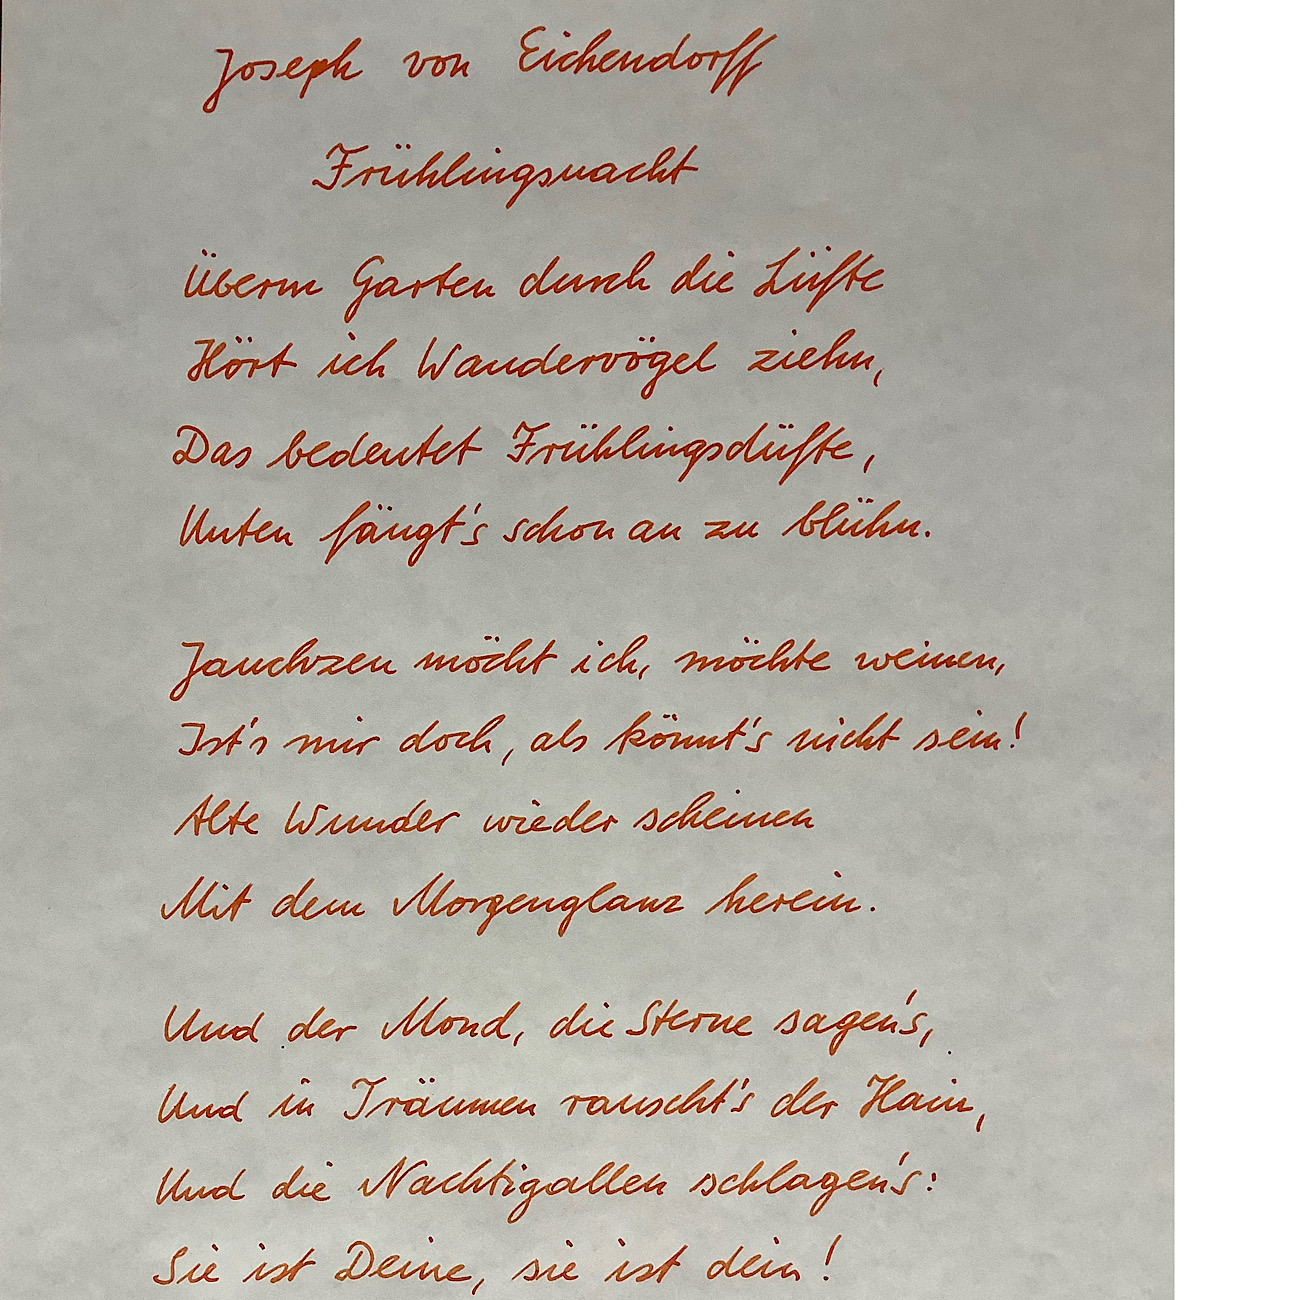 Joseph von Eichendorff
Frühlingsnacht
Überm Garten durch die Lüfte
Hört ich Wandervögel ziehn,
Das bedeutet Frühlingsdüfte,
Unten fängt's schon an zu blühn.
Jauchzen möcht ich, möchte weinen,
Ist's mir doch, als könnt's nicht sein!
Alte Wunder wieder scheinen
Mit dem Morgenglanz herein.
Und der Mond, die Sterne sagen's,
Und in Träumen rauscht's der Hain,
Und die Nachtigallen schlagen's:
Sie ist Deine, sie ist dein!